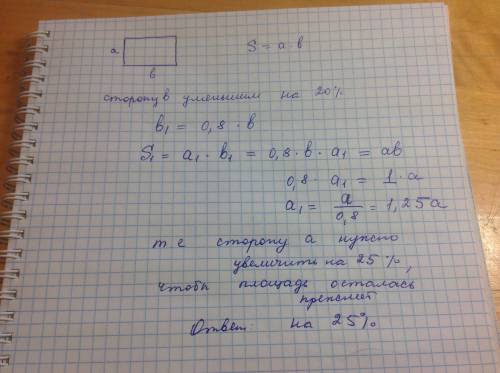 a
в
S = a · в
сторону в уменьшим на 20%
в₁ = 0,8 · в
S₁ = a₁ · в₁ = 0,8 · в · a₁ = aв
0,8 · a₁ = 1 · a
a₁ = a/0,8 = 1,25a
т е сторону a нужно
увеличить на 25%,
чтобы площадь осталась
прежней
Ответ: на 25%